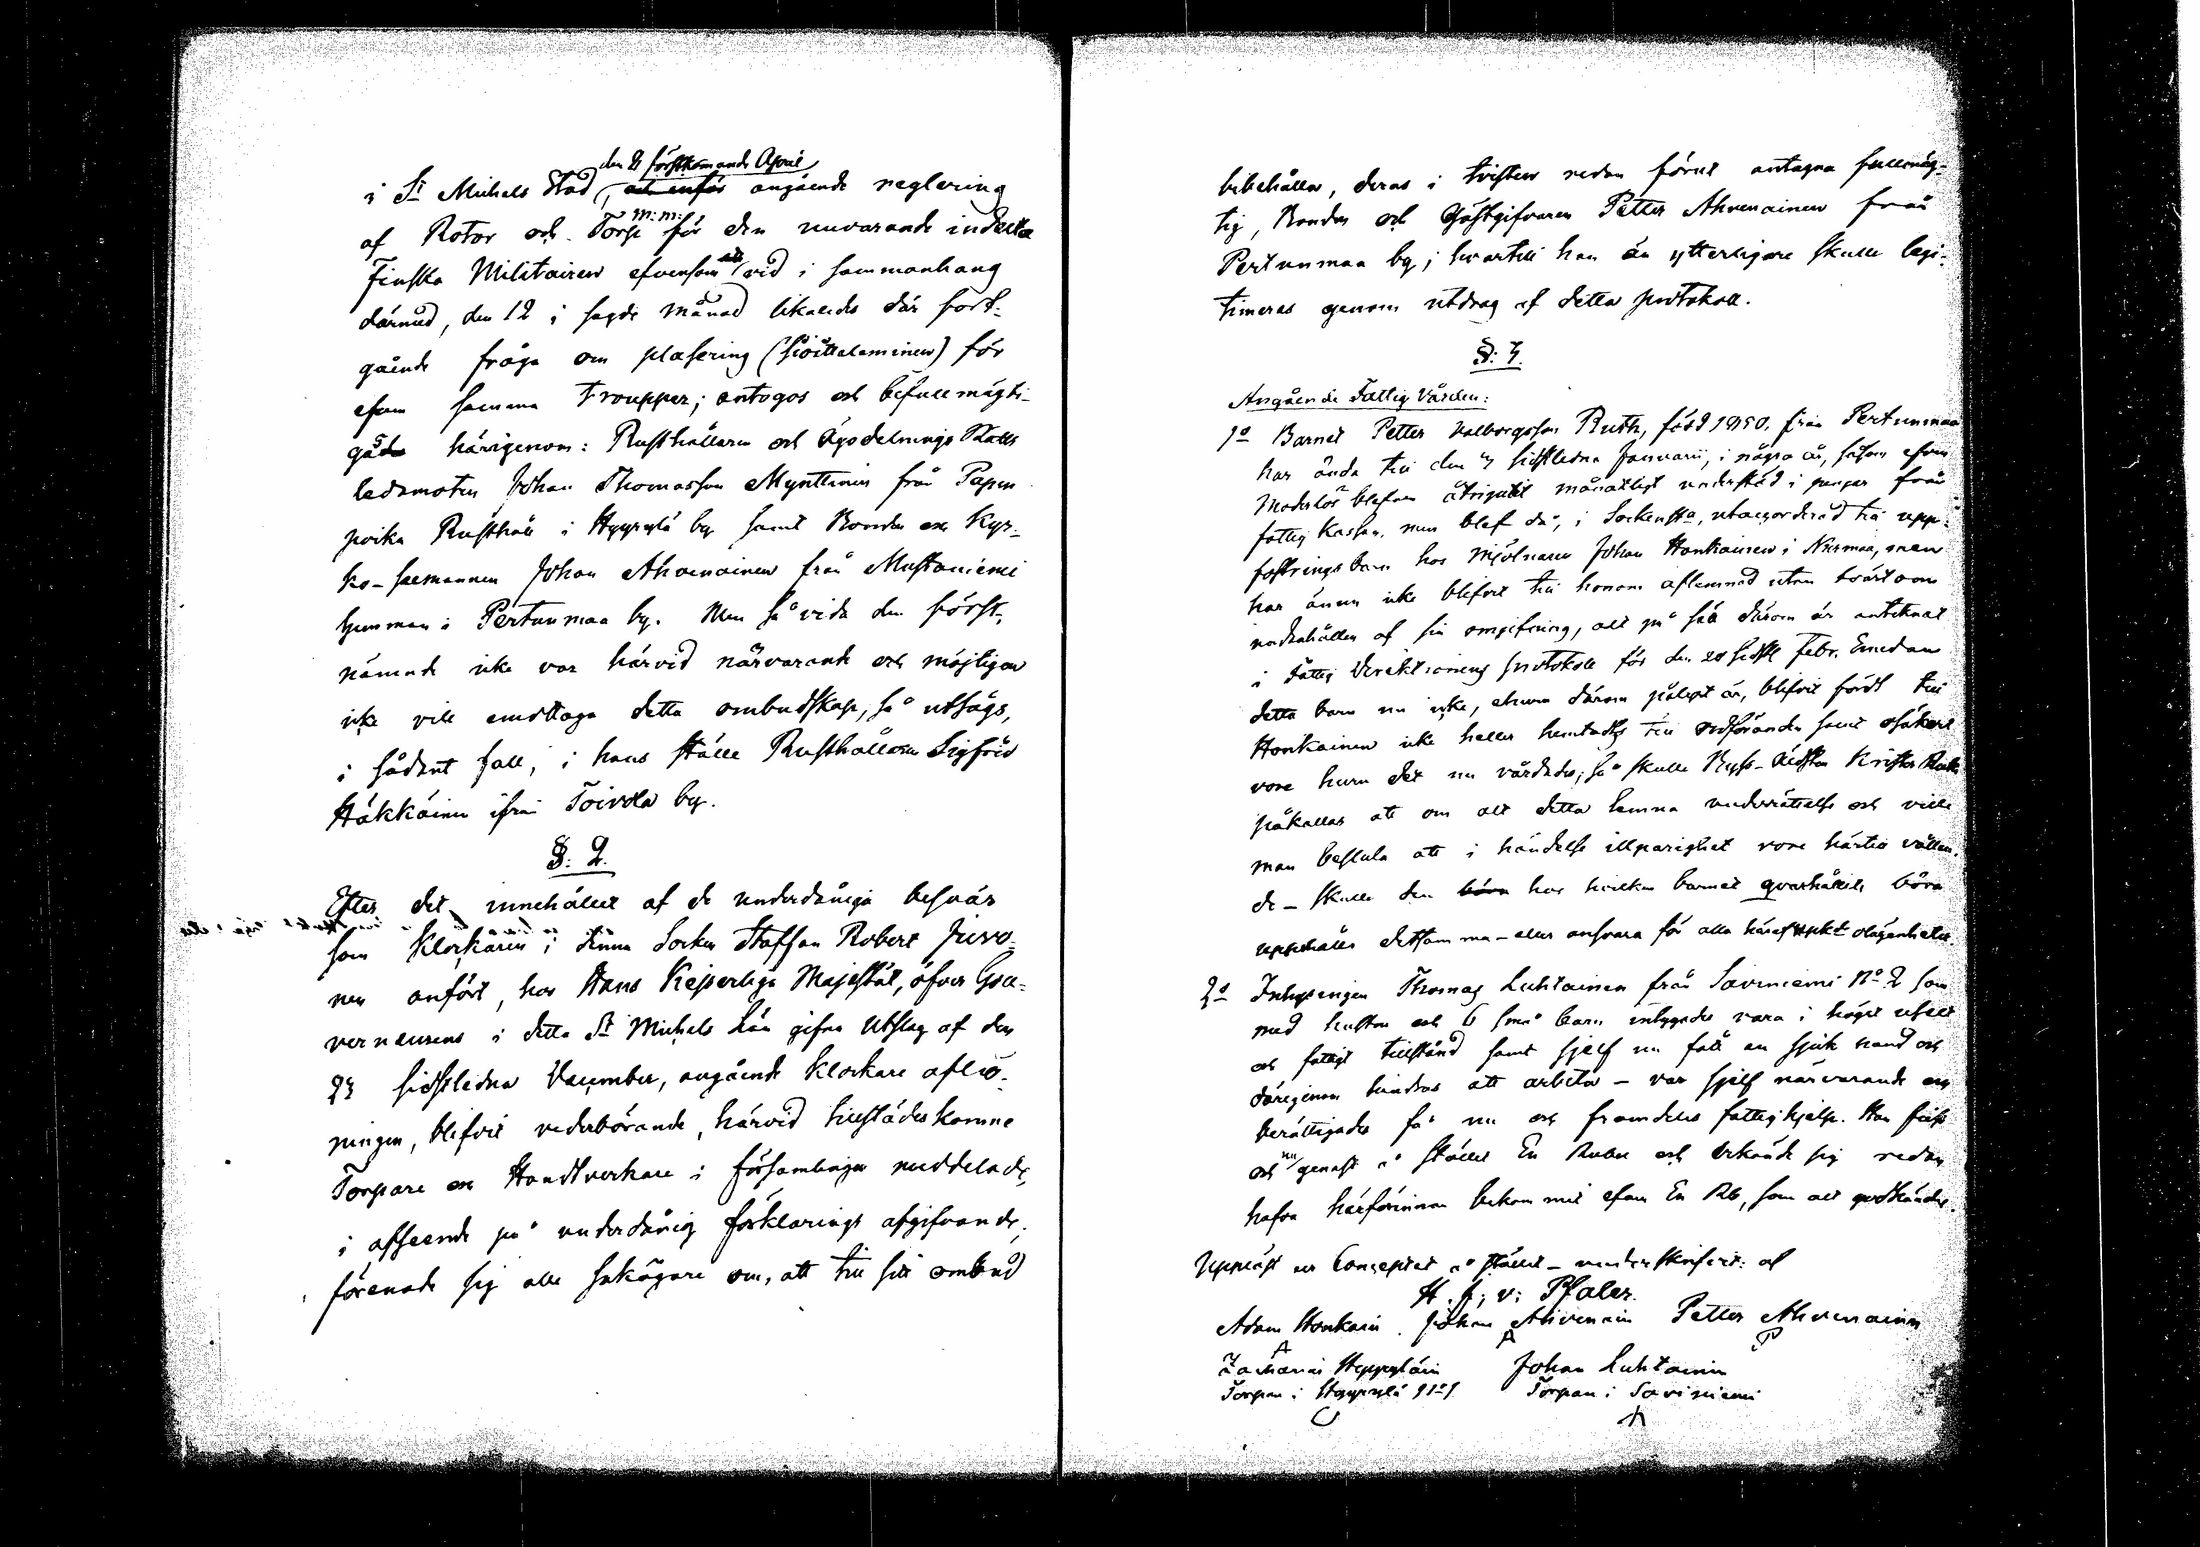 den 8 förstkomande April
i St Michels Stad, angående reglering
af Rotor och Torp m:m: för den nuvarande indelta
Finska Militairen äfvensom vid i sammanhang
därmed, den 12 i sagde månad likaledes där fort-
gående fråga om plasering (sioittelaminen) för
äfven samma troupper; antogos och befullmägti-
gades härigenom: Rusthållaren och Ägodelnings Rätts
ledamoten Johan Thomasson Mynttinen från Papin
poika Rusthåll i Hyyrylä by samt Bonden och Kyr-
ko-sexmannen Johan Ahvenainen från Mustaniemi
hemman i Pertunmaa by. Men så vida den först-
nämnde icke var härvid närvarande och möjligen
icke vill emottaga detta ombudskap, så utsågs,
i sådant fall, i hans ställe Rusthållaren Sigfrid
Häkkäinen ifrån Toivola by.
§: 2.
Efter det innehållet af de underdåniga besvär
som Klockaren i denna Socken Staffan Robert Juvo-
nen anfört, hos Hans Kejserliga Majestät, öfver Gou-
verneurens i detta St Michels Län gifna Utslag af den
23 sidstledne December, angående Klockare aflö-
ningen, blifvit vederbörande, härvid tillstädeskomne
Torpare och Handtverkare i församlingen meddelade,
i afseende på underdånig förklarings afgifvande,
förenade sig alla sakägare om, att till sitt ombud
bibehålla, deras i tvisten redan förut antagna fullmäg-
tig, Bonden och Gästgifvaren Petter Ahvenainen från
Pertunmaa by; hvartill han än ytterligare skulle legi-
timeras genom utdrag af detta protokoll.
§: 3.
Angående Fattig Vården:
1o Barnet Petter Valborgsson Ruth, född 1850. från Pertunmaa
har ända till den sidstledne Januarii, i några år, såsom äfven
Moderlös blefven åtnjutit månatligt understöd i penger från
fattig Kassan, men blef då, i Sockenst:a, utaccorderad till upp-
fostrings barn hos Mjölnaren Johan Honkainen i Nirmaa, men
har ännu icke blifvit till honom aflemnad utan tvärtom
undanhållen af sin omgifning, allt på sätt därom är antecknat
i Fattig Direktionens protokoll för den 20 sidstl Febr. Emedan
detta barn nu icke, ehuru därom pålyst är, blifvit fördt till
Honkainen icke heller hemtades till ordföranden samt osäkert
vore huru det nu vårdades; så skulle Krister Ruth
påkallas att om allt detta lemna underrättelse och ville
man besluta att i händelse illparighet vore härtill vållan-
de - skulle den hos hvilken barnet qvarhållits böra
uppehålla detsamma - eller ansvara för alla häraf olägenheter.
2o Inhysingen Thomas Luhtainen från Saviniemi No 2 som
med hustru och 6 små barn intygades vara i högst uselt
och fattigt tillstånd samt sjelf nu fått en sjuk hand och
därigenom hindras att arbeta - var sjelf närvarande och
berättigades få nu och framdeles fattighjelp. Han fick
och nu genast å stället En Rubel och erkände sig redan
hafva härförinnan bekommit äfven En Rb, som allt godkändes.
Uppläst ur Conceptet å stället - underskrifvit: af
H. J; v: Pfaler.
Adam Honkain Johan Ahvenain Petter Ahvenainen
A A P
Zacharias Hyyryläin Johan Luhtainen
Torpare i Hyyrylä No 1 Torpare i Saviniemi